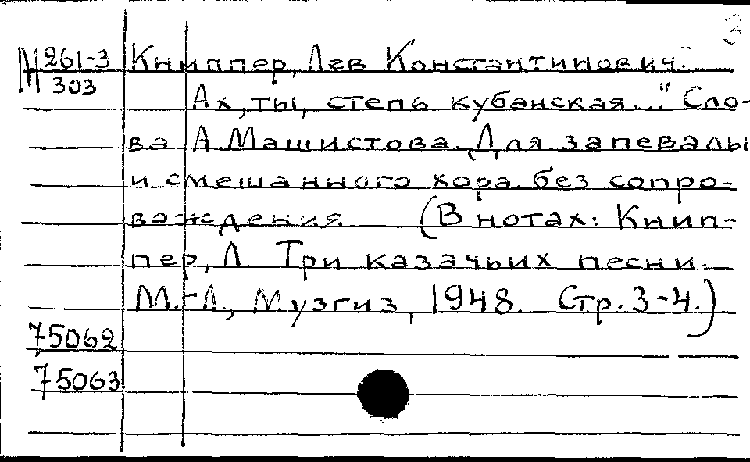 3
М 261-3 Книппер, Лев Константинович.
303
„Ах, ты, степь кубанская..." Сло-
ва А Машистова. Для запевалы
и смешанного хора без сопро-
вождения. (В нотах: Книп-
пер, Л Три казачьих песни.
М.-Л., Музгиз, 1948. Стр. 3-4.)
75062
75063